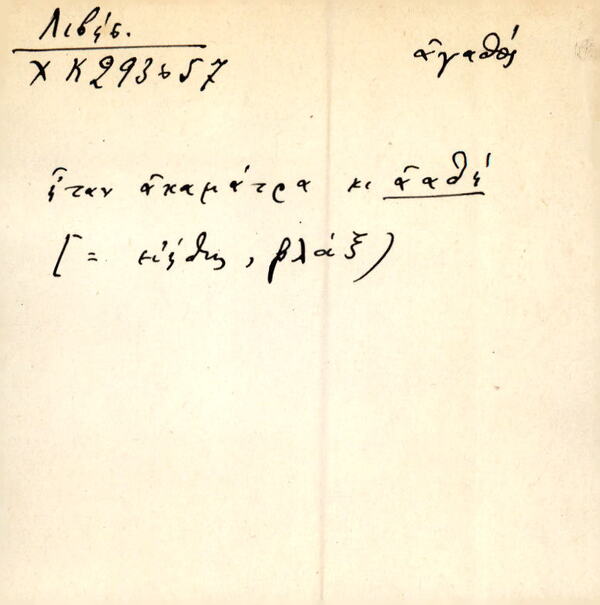 Λιβύσ.
Χ Κ 293 σ 57
ἀγαθός
ἦταν ἀκαμάτρα κι ἀαθή
(= εὐήθης, βλάξ)